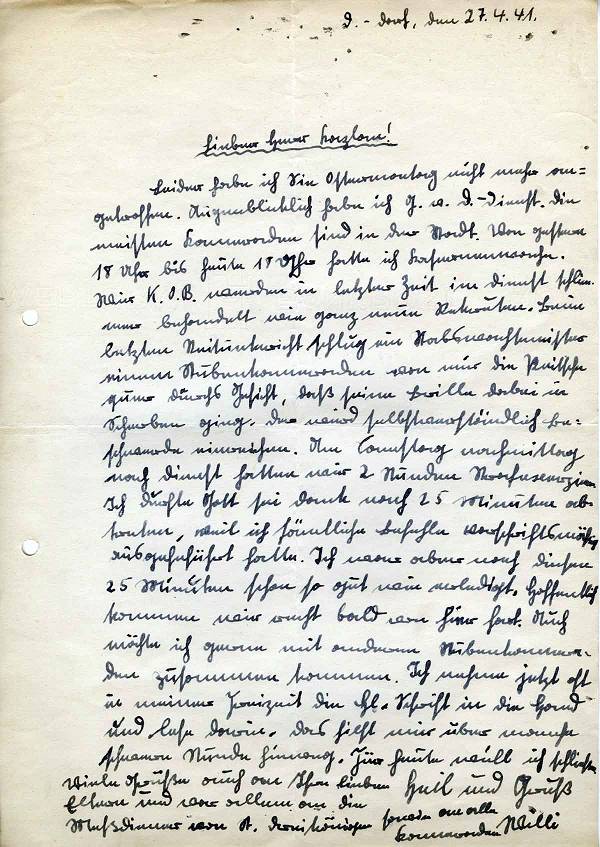 D.-dorf, den 27.4.41.
Lieber Herr Kaplan!
Leider habe ich Sie Ostermontag nicht mehr an-
getroffen. Augenblicklich habe ich G. v. D.-Dienst. Die
meisten Kameraden sind in der Stadt. Von gestern
18 Uhr bis heute 18 Uhr hatte ich Kasernenwache.
Wir K.O.B. werden in letzter Zeit im Dienst schlim-
mer behandelt wie ganz neue Rekruten. Beim
letzten Reitunterricht schlug ein Stabswachtmeister
einem Stubenkameraden von mir die Peitsche
quer durchs Gesicht, daß seine Brille dabei in
Scherben ging. Der wird selbstverständlich Be-
schwerde einreichen. Am Samstag nachmittag
nach Dienst hatten wir 2 Stunden Strafexerzieren.
Ich durfte Gott sei dank nach 25 Minuten ab-
treten, weil ich sämtliche Befehle vorschriftsmäßig
ausgeführt hatte. Ich war aber nach diesen
25 Minuten schon so gut wie erledigt. Hoffentlich
kommen wir recht bald von hier fort. Auch
möchte ich gerne mit anderen Stubenkamera-
den zusammen kommen. Ich nehme jetzt oft
in meiner Freizeit die Hl. Schrift in die Hand
und lese darin. Das hilft mir über manche
schwere Stunde hinweg. Für heute will ich schließen
Viele Grüße auch an Ihre lieben
Eltern und vor allem an die
Meßdiener von St. Dreikönigen sowie an alle
Kameraden
Heil und Gruß
Willi